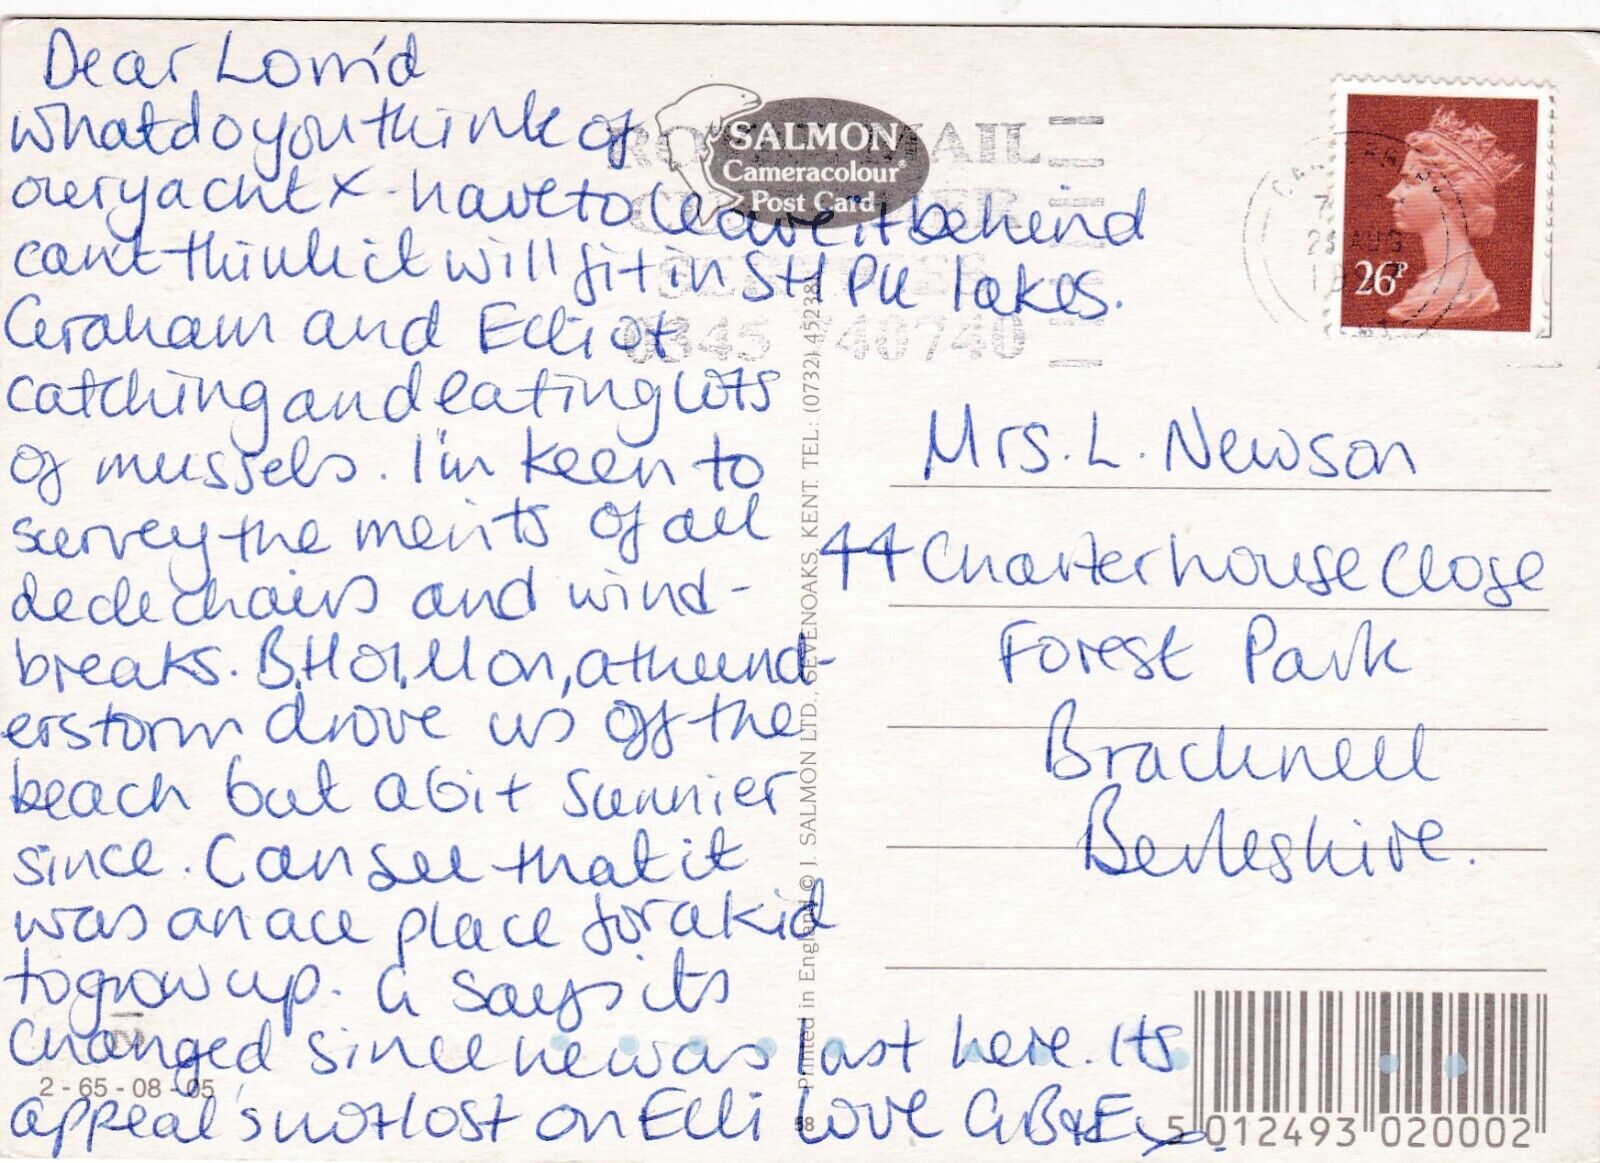 Dear Lorn'd
what do you think of
our yacht x - have to leave it behind
cant think it will fit in STH PK lakes.
Graham and Elliot
catching and eating lots
of mussels. I'm keen to
survey the merits of all
deckchairs and wind-
breaks. B, HOl, Mon, a thund-
erstorm drove us off the
beach but a bit sunnier
since. Can see that it
was an ace place for a kid
to grow up. G says its
changed since he was last here. Its
appeal's not lost on Elli Love G B & E x.
SALMON
Cameracolour®
Post Card
ROYAL MAIL
0345 740740
26P
25 AUG
Mrs. L. Newson
44 Charterhouse Close
Forest Park
Bracknell
Berkshire.
Printed in England © J. SALMON LTD., SEVENOAKS, KENT. TEL: (0732) 452381
2 - 65 - 08 - 05
58
5 012493 020002